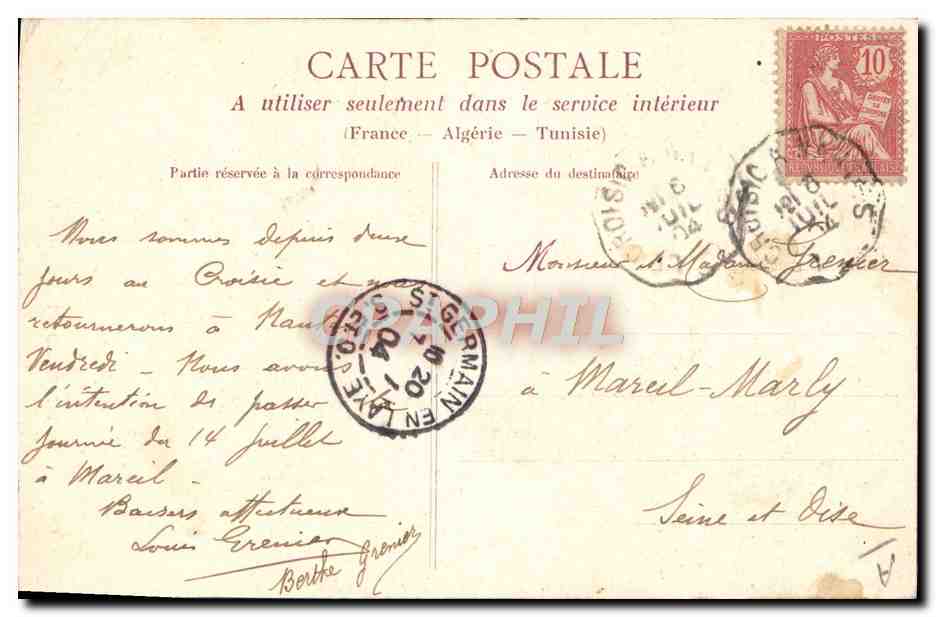 CARTE POSTALE
A utiliser seulement dans le service intérieur
(France — Algérie — Tunisie)
Partie réservée à la correspondance
Adresse du destinataire
POSTES
10
Nous sommes depuis deux
jours au Croisic et nous
retournerons à Nantes
Vendredi - Nous avons
l'intention de passer
journée du 14 juillet
à Mareil -
Baisers affectueux
Louis Grenier
Berthe Grenier
Monsieur et Madame Grenier
à Mareil-Marly
Seine et Oise
ST GERMAIN EN LAYE
S. ET O.
04
CPAPHIL
A